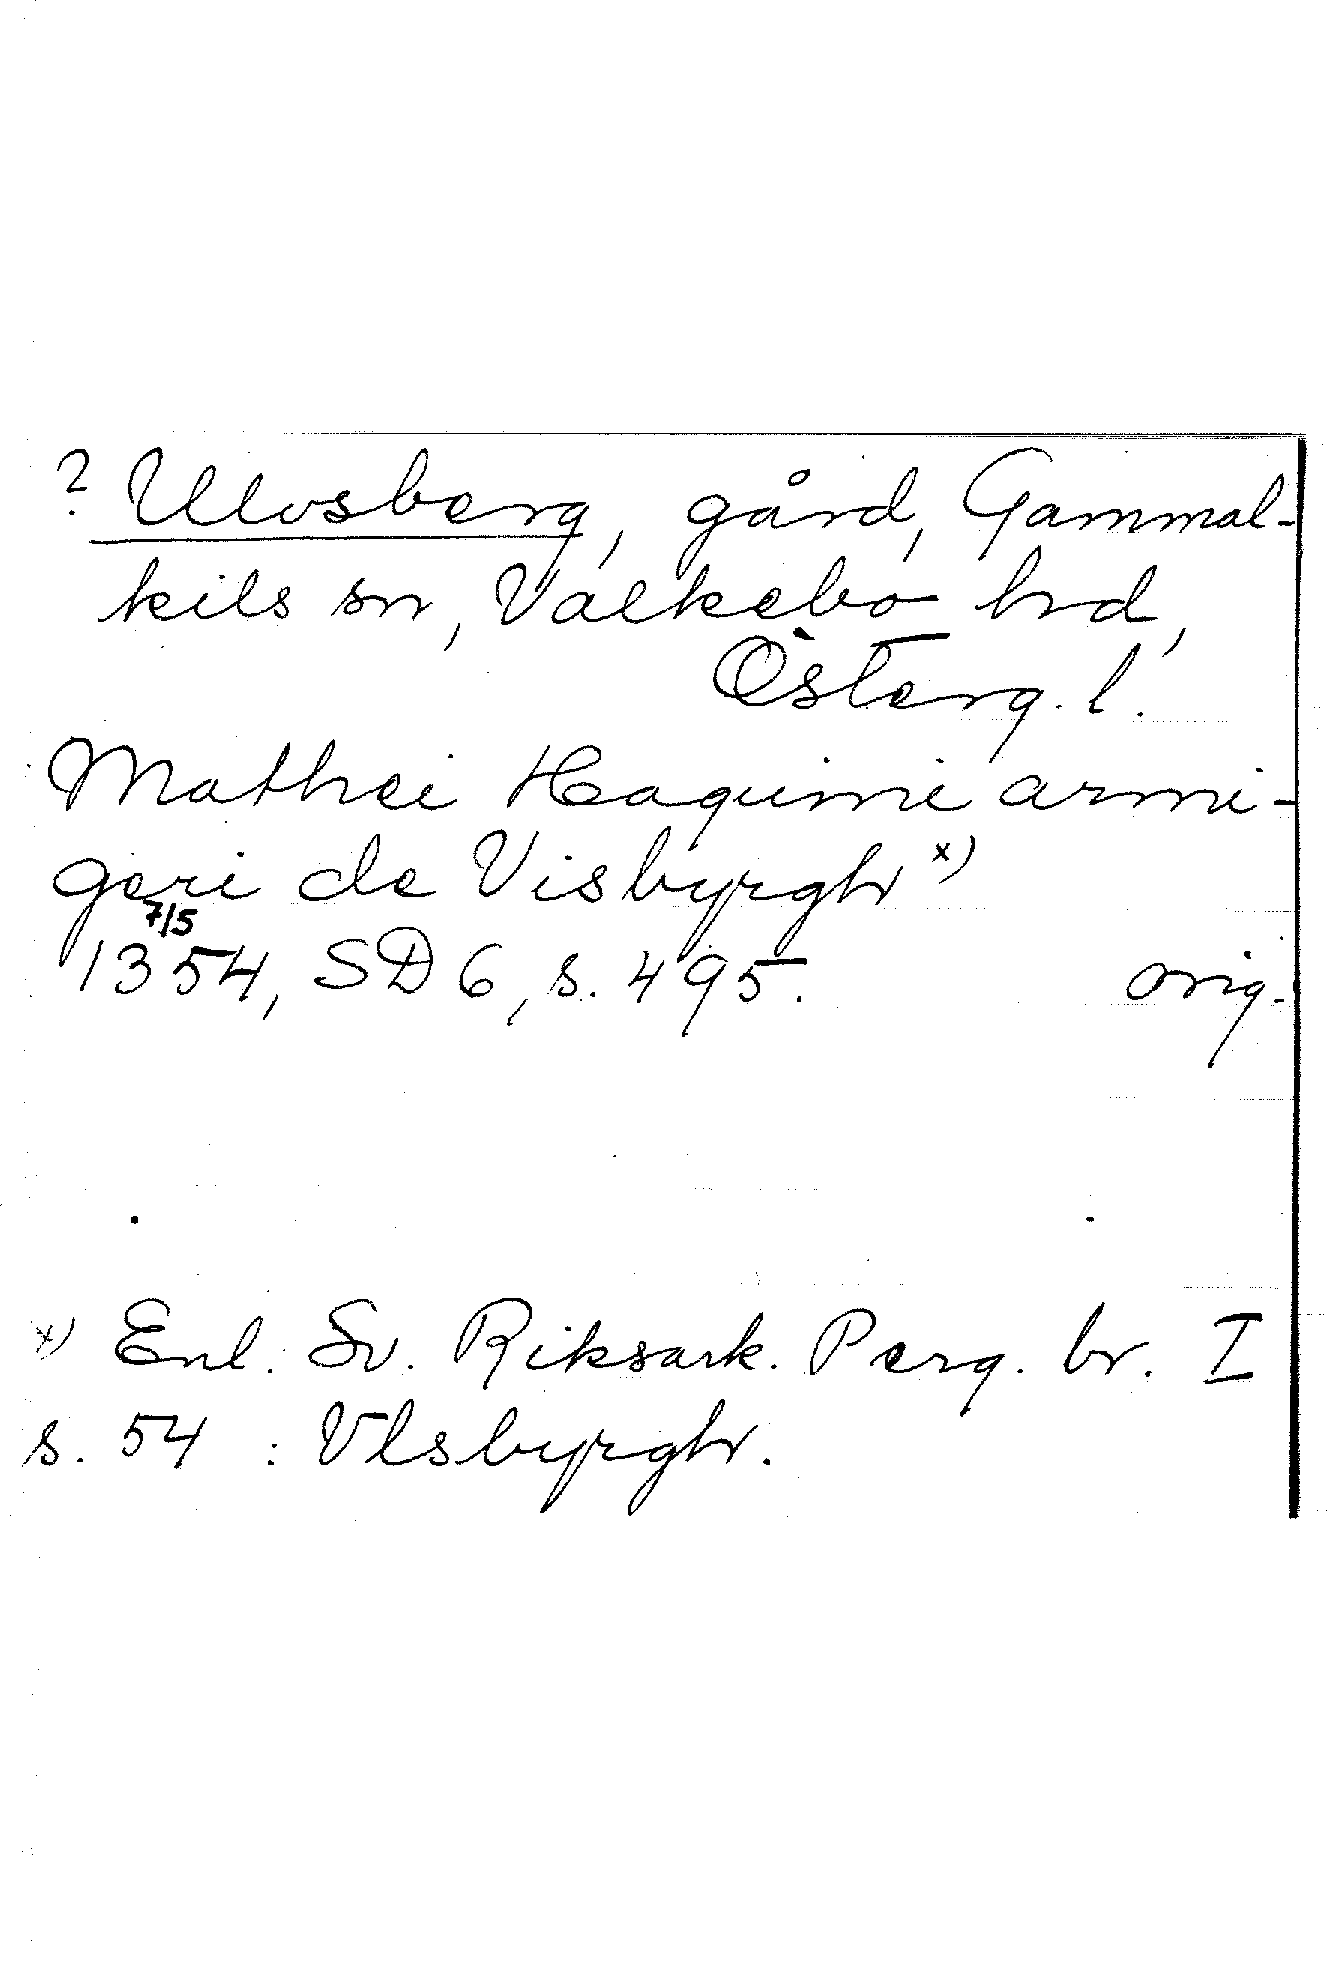 ? Ulvsberg, gård, Gammal-
kils sn, Valkebo hrd,
Österg. l.
Mathei Haquini armi-
geri de Visbyrgh x)
7/5
1354, SD 6, s. 495. orig.
x) Enl. Sv. Riksark. Perg. br. I
s. 54 : Vlsbyrgh.